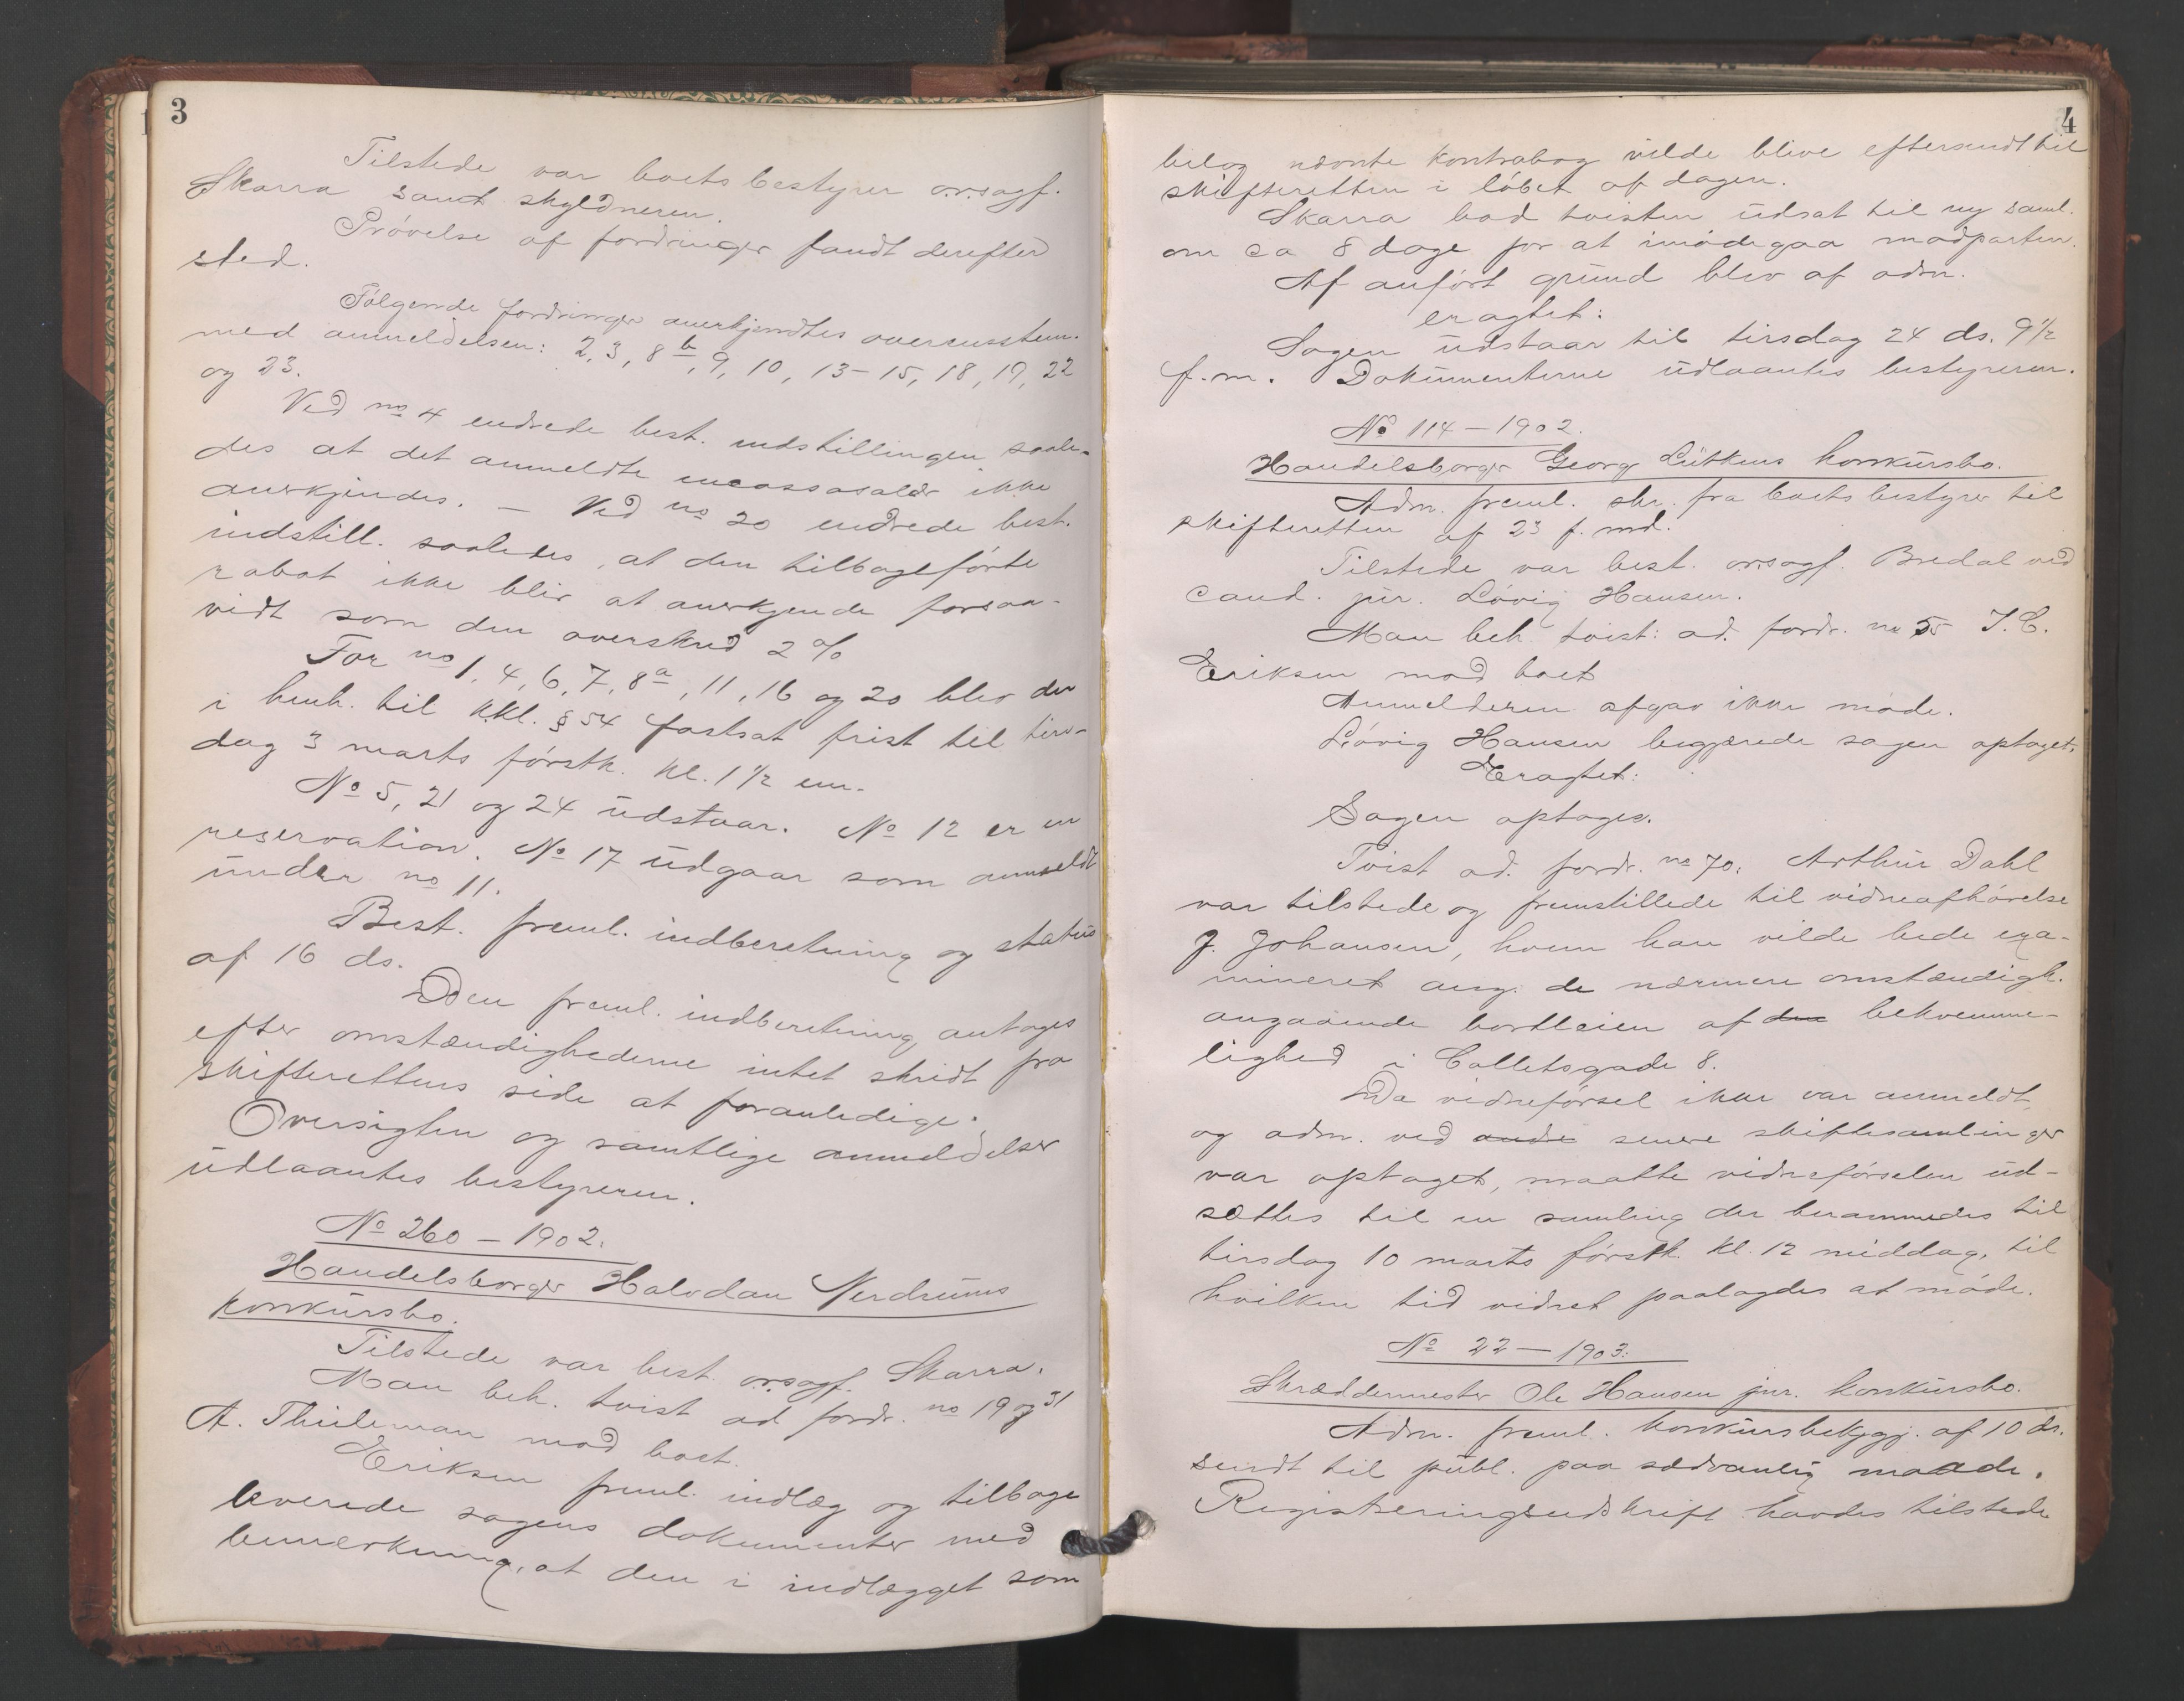 3
Tilstede var boets bestyrer o.r.sagf.
Skarra samt skyldneren.
Prøvelse af fordringer fandt derefter
sted.
Følgende fordringer anerkjendtes overensstem.
med anmeldelsen: 2, 3, 8 b, 9, 10, 13-15, 18, 19, 22
og 23.
Ved no 4 endrede best. indstillingen saale-
des at det anmeldte incassosalær ikke
anerkjendes. — Ved no 20 endrede best.
indstill. saaledes, at den tilbageførte
rabat ikke blir at anerkjende forsaa-
vidt som den overskred 2 %
For no 1, 4, 6, 7, 8 a, 11, 16 og 20 blev der
i henh. til kkl. § 54 fastsat frist til tirs-
dag 3 marts førstk. kl. 1 1/2 em.
No 5, 21 og 24 udstaar. No 12 er en
reservation. No 17 udgaar som anmeldt
under no 11.
Best. freml. indberetning og status
af 16 ds.
Den freml. indberetning antages
efter omstændighederne intet skridt fra
skifterettens side at foranledige.
Oversigten og samtlige anmeldelser
udlaantes bestyreren.
No 260 - 1902.
Handelsborger Halvdan Nerdrums
konkursbo.
Tilstede var best. o.r.sagf. Skarra.
Man beh. tvist ad fordr. no 19 og 31
A. Thieleman mod boet.
Eriksen freml. indlæg og tilbage
leverede sagens dokumenter med
bemærkning, at den i indlægget som
4
bilag nævnte kontrabog vilde blive eftersendt til
skifteretten i løbet af dagen.
Skarra bad tvisten udsat til ny saml.
om ca 8 dage for at imødegaa modparten.
Af anført grund blev af adm.
eragtet:
Sagen udstaar til tirsdag 24 ds. 9 1/2
f.m. Dokumenterne udlaantes bestyreren.
No 114 - 1902.
Handelsborger Georg Lütkens konkursbo.
Adm. freml. skr. fra boets bestyrer til
skifteretten af 23 f. md.
Tilstede var best. o.r.sagf. Bredal ved
cand. jur. Løvig Hansen.
Man beh. tvist: ad. fordr. no 55 J. C.
Eriksen mod boet
Anmelderen afgav ikke møde.
Løvig Hansen begjærede sagen optaget.
Eragtet:
Sagen optages.
Tvist ad. fordr. no 70. Arthur Dahl
var tilstede og fremstillede til vidneafhørelse
J. Johansen, hvem han vilde bede exa-
mineret ang. de nærmere omstændigh.
angaaende bortleien af den bekvemme-
lighed i Colletsgade 8.
Da vidneførsel ikke var anmeldt,
og adm. ved andre senere skiftesamlinger
var optaget, maatte vidneførselen ud-
sættes til en samling der berammedes til
tirsdag 10 marts førstk. kl. 12 middag, til
hvilken tid vidnet paalagdes at møde.
No 22 - 1903.
Skræddermester Ole Hansen jnr. konkursbo.
Adm. freml. konkursbekjgj. af 10 ds.
sendt til publ. paa sædvanlig maade.
Registreringsudskrift havdes tilstede